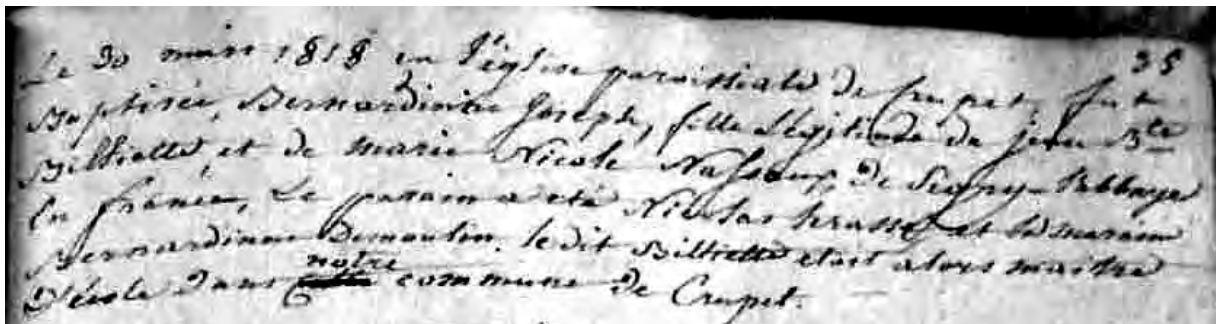 35
Le 30 mars 1818 en l'église paroissiale de Crupet, fut
Baptisée, Bernardinine Joseph, fille Légitime de jean Bte
Billiette, et de marie Nicole de Signy-l'abbaye
En france, Le parain a été Nicolas et la maraine
Bernardinine Demoulin. le dit Billiette etoit alors maitre
D'école dans notre commune de Crupet.